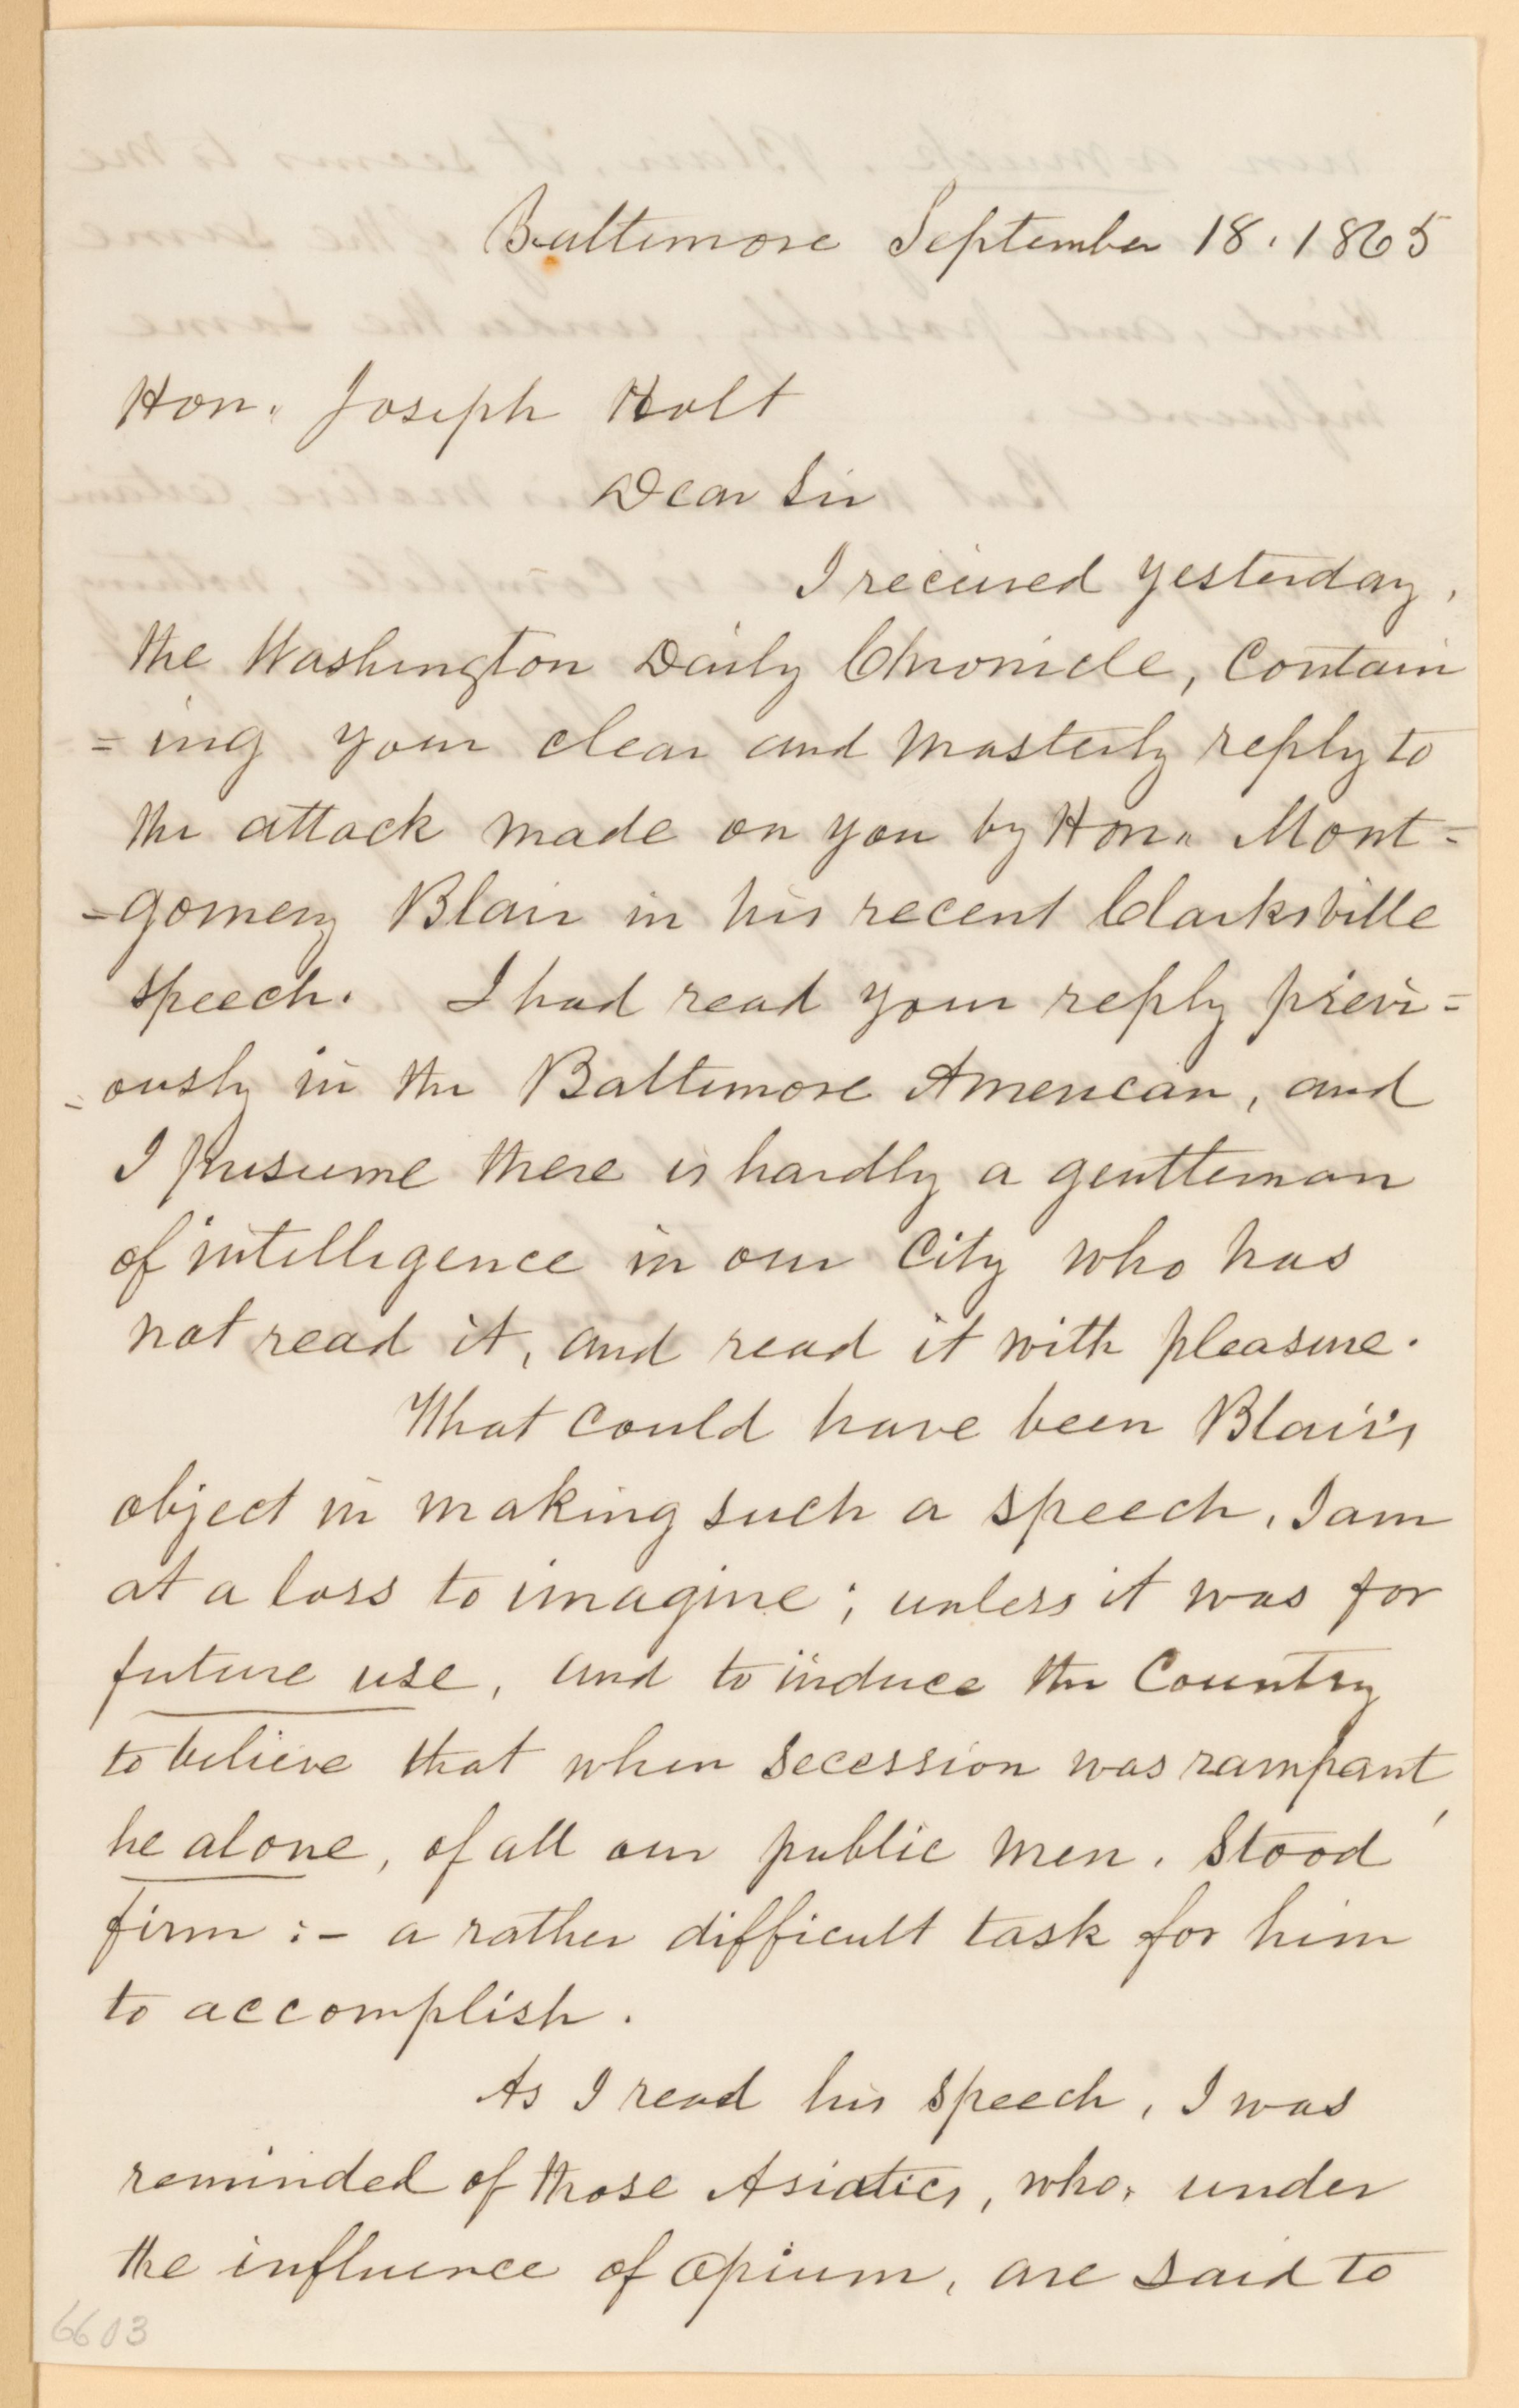 Baltimore September 18. 1865
Hon. Joseph Holt
Dear Sir
I received yesterday,
the Washington Daily Chronicle, Contain
=ing your clear and masterly reply to
the attack made on you by Hon. Mont=
=gomery Blair in his recent Clarksville
speech. I had read your reply previ=
=ously in the Baltimore American, and
I presume there is hardly a gentleman
of intelligence in our City who has
not read it, and read it with pleasure.
What could have been Blair's
object in making such a speech, I am
at a loss to imagine; unless it was for
future use, and to induce the Country
to believe that when secession was rampant,
he alone, of all our public men, stood
firm :- a rather difficult task for him
to accomplish.
As I read his speech, I was
reminded of those Asiatics, who, under
the influence of opium, are said to
6603